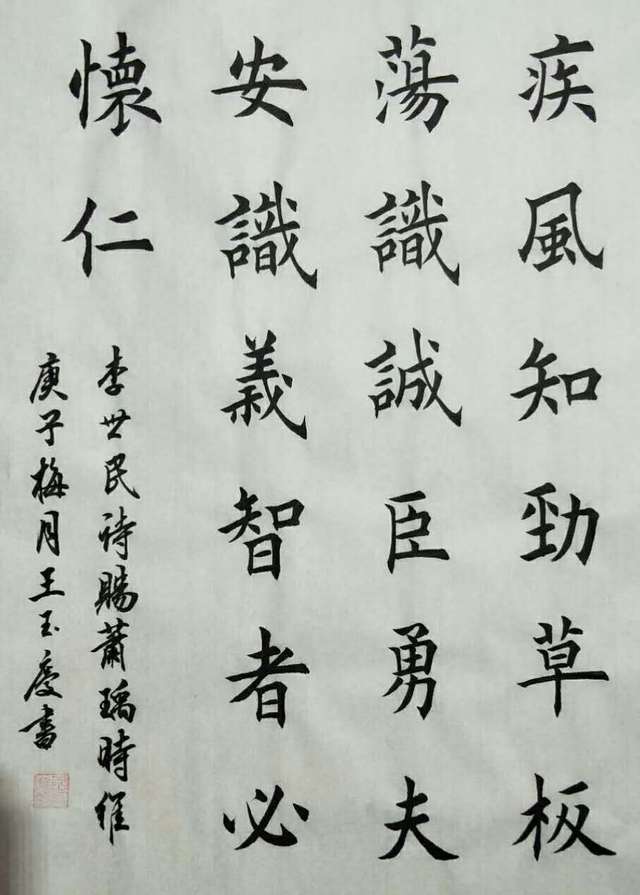 疾風知勁草板
蕩識誠臣勇夫
安識義智者必
懷仁
李世民詩賜蕭瑀時維
庚子梅月王玉慶書